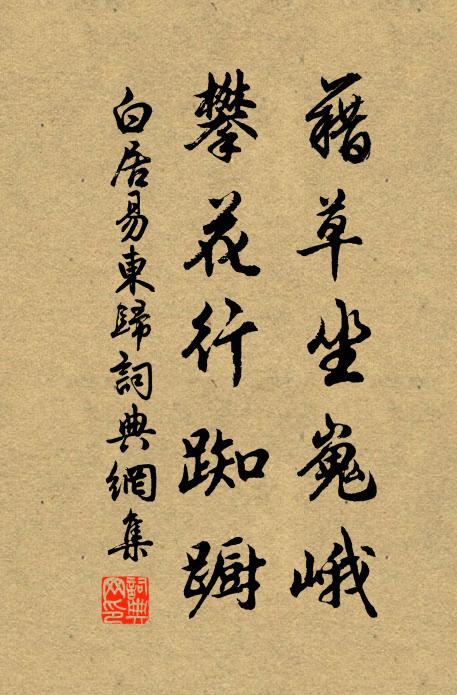 藉草坐嵬峨
攀花行踟蹰
白居易東歸詞典網集
詞典网印